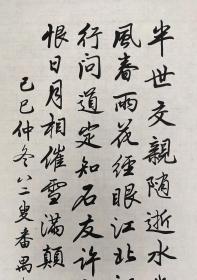 半世交親隨逝水
風春雨花經眼江北
行問道定知石友許
恨日月相催雪滿顛
己巳仲冬八二叟番禺